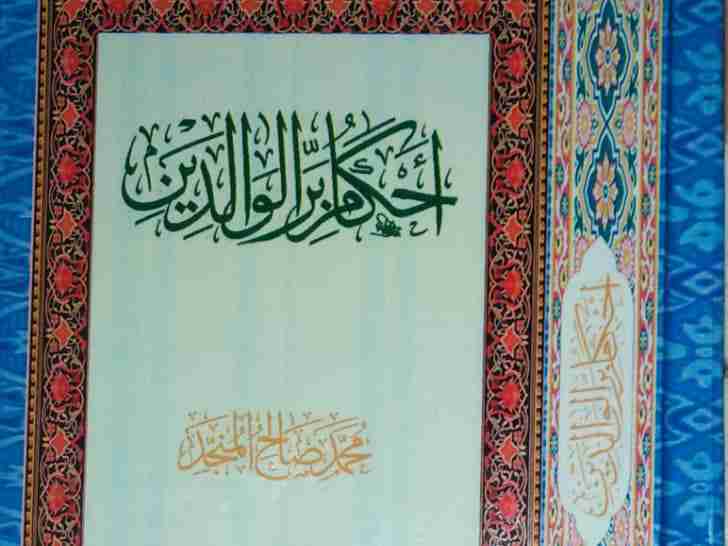 أحكام بر الوالدين
محمد صالح المنجد
أحكام بر الوالدين